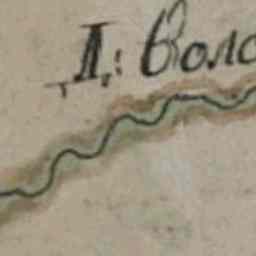 Д: Воло